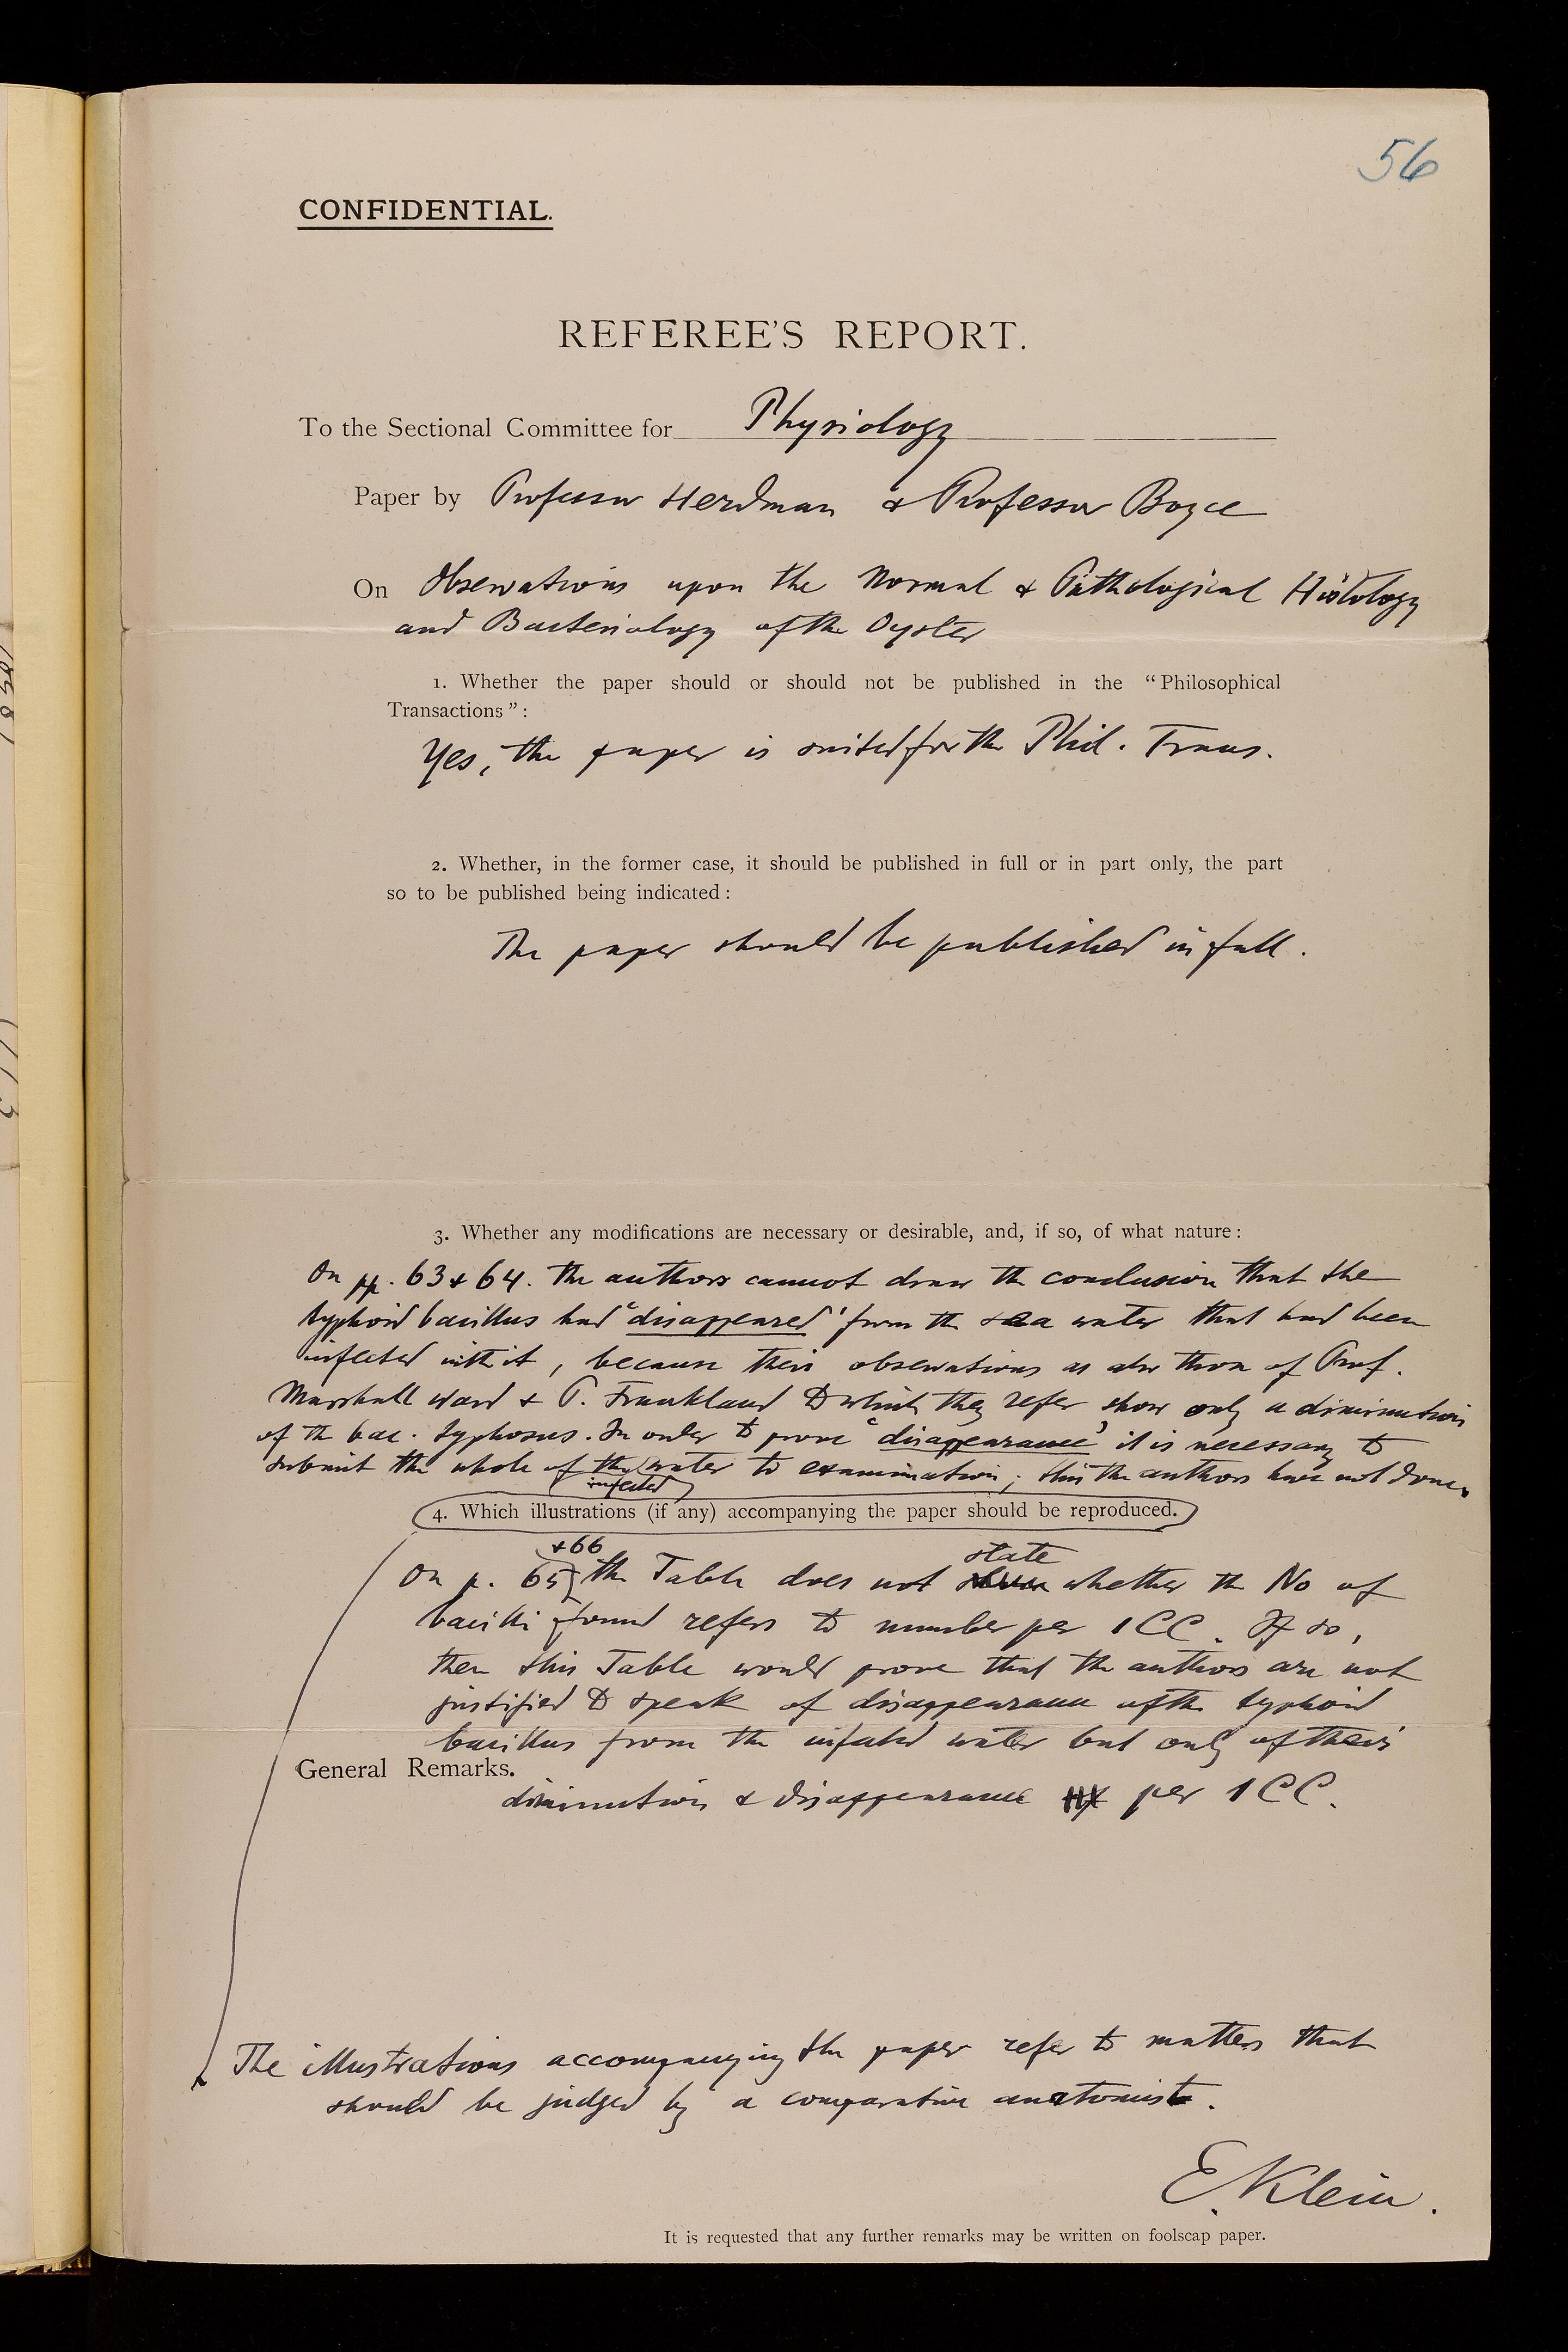 56
CONFIDENTIAL.
REFEREE'S REPORT.
To the Sectional Committee for Physiology
Paper by Professor Herdman & Professor Boyce
On Observations upon the Normal & Pathological Histology
and Bacteriology of the Oyster
1. Whether the paper should or should not be published in the "Philosophical
Transactions":
Yes, the paper is suited for the Phil. Trans.
2. Whether, in the former case, it should be published in full or in part only, the part
so to be published being indicated:
The paper should be published in full.
3. Whether any modifications are necessary or desirable, and, if so, of what nature:
On pp. 63 & 64. the authors cannot draw the conclusion that the
typhoid bacillus had "disappeared" from the sea water that had been
infected with it, because their observations as also those of Prof.
Marshall Ward & P. Frankland to which they refer show only a diminution
of the bac. typhosus. In order to prove "disappearance" it is necessary to
submit the whole of the infected water to examination; this the authors have not done.
4. Which illustrations (if any) accompanying the paper should be reproduced.
On p. 65 & 66 the Table does not state whether the No of
bacilli found refers to number per 1 CC. If so,
then this Table would prove that the authors are not
justified to speak of disappearance of the typhoid
bacillus from the infected water but only of their
General Remarks.
diminution & disappearance per 1 CC.
The illustrations accompanying the paper refer to matters that
should be judged by a comparative anatomist.
E. Klein.
It is requested that any further remarks may be written on foolscap paper.